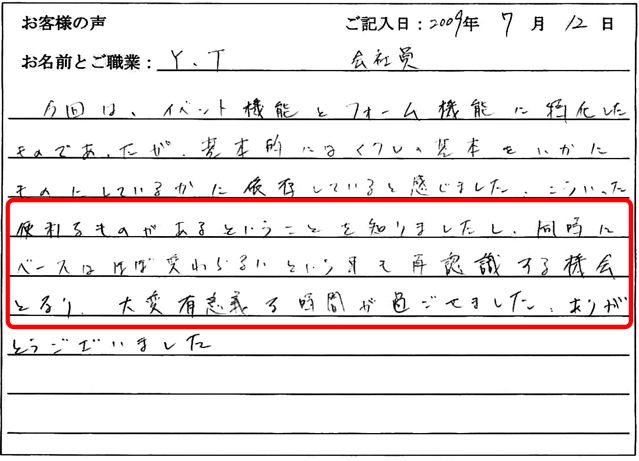 お客様の声 ご記入日：2009年 7 月 12 日
お名前とご職業： Y.T 会社員
今回は、イベント機能とフォーム機能に特化した
ものであったが、基本的にはくクレの基本をいかに
ものにしているかに依存していると感じました。こういった
便利なものがあるということを知りましたし、同時に
ベースはほぼ変わらないという事も再認識する機会
となり、大変有意義な時間が過ごせました。ありが
とうございました